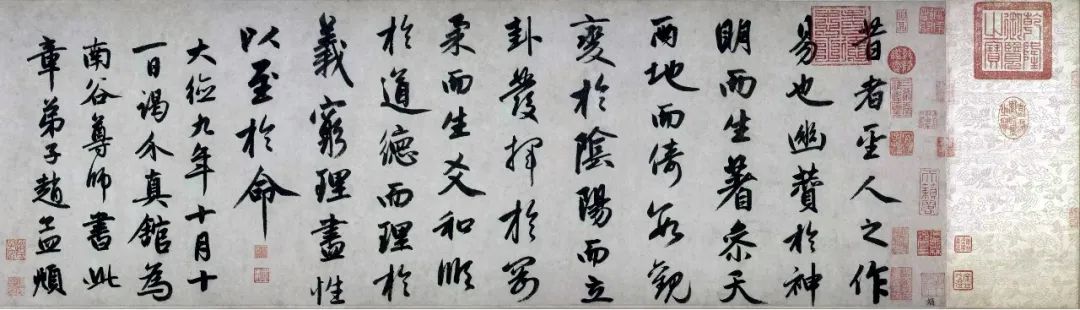 乾隆御覽之寶
昔者聖人之作
易也幽贊於神
明而生蓍參天
兩地而倚數觀
變於陰陽而立
卦發揮於剛
柔而生爻和順
於道德而理於
義窮理盡性
以至於命
大德九年十月十
一日謁升真館為
南谷尊師書此
章弟子趙孟頫